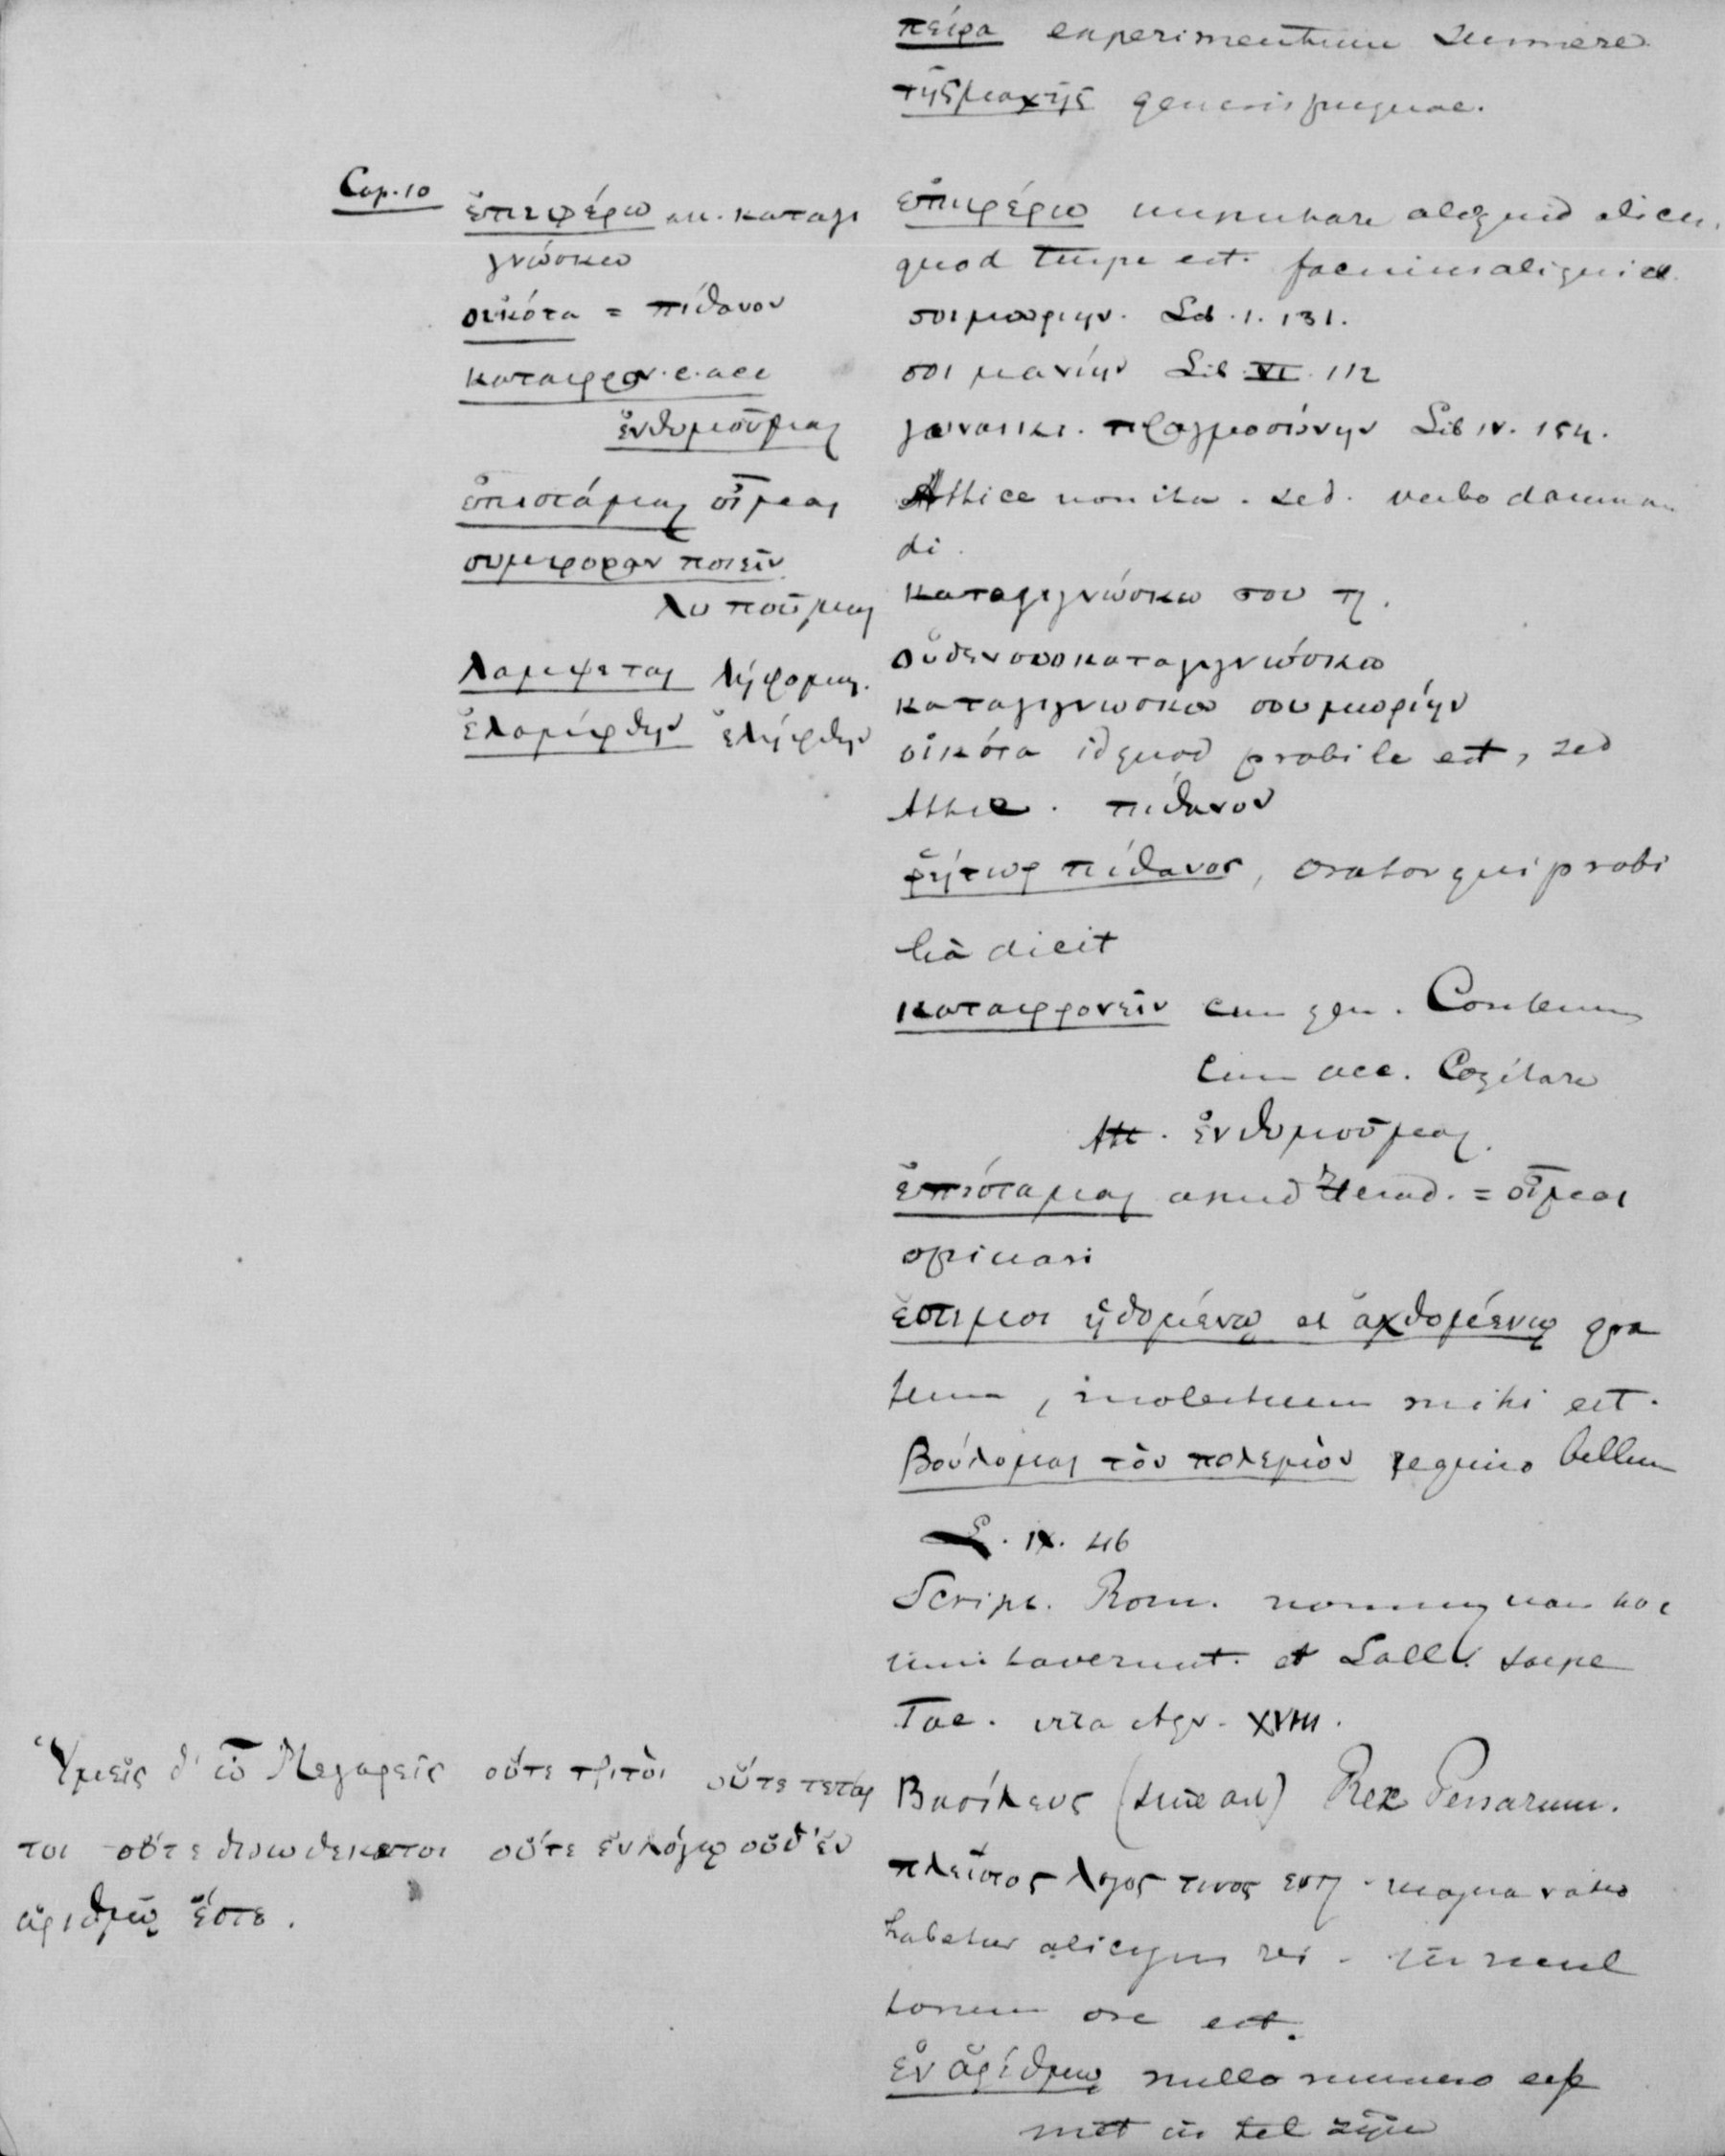 πείρα experimentum sumere
τῆς μαχῆς generis pugnae.
Cap. 10
ἐπιφέρω att. καταγι
γνώσκω
οἰκότα = πίθανον
καταφρον. c. acc
ἐνθυμοῦμαι
ἐπιστάμαι οἶμαι
συμφοραν ποιεῖν
λυποῦμαι
λαμψεται λήψομαι.
ἐλαμφθην ἐλήφθην
ἐπιφέρω imputare aliquid alicui
quod turpe est. facinus aliquid
σοι μωριην. Lib. 1. 131.
σοι μανίην Lib. VI. 112
γυναικι. Lib IV. 154.
Attice non ita. sed. verbo damnan
di.
καταγιγνώσκω σου τι.
οὐδεν σου καταγιγνώσκω
καταγιγνωσκω σου μωρίην
οἰκότα id quod probile est, sed
Attic. πιθανον
ῥήτωρ πίθανος, orator qui probi
lia dicit
καταφρονεῖν cum gen. Contemn
Cum acc. Cogitare
Att. ἐνθυμοῦμαι.
ἐπίσταμαι apud Herod. = οἶμαι
opinari
ἐστι μοι ἡδομένῳ et ἀχθομένῳ gra
tum, molestum mihi est.
Βούλομαι τὸν πολεμιὸν requiro bellum
L. IX. 46
Script. Rom. nonnunquam hoc
imitaverunt. et Sall. saepe
Tac. vita Agr. XVIII.
Βασίλευς (sine art) Rex Persarum.
πλεῖστος λογος τινος εστι. magna ratio
habetur alicujus rei. in mul
torum ore est.
ἐν ἀρίθμῳ nullo numero
Ὑμεῖς δ' ὦ Μεγαρεῖς οὔτε τριτοι οὔτε τεταρ
τοι οὔτε δυωδεκατοι οὔτε ἐν λόγῳ οὐδ' ἐν
ἀριθμῷ ἔστε.